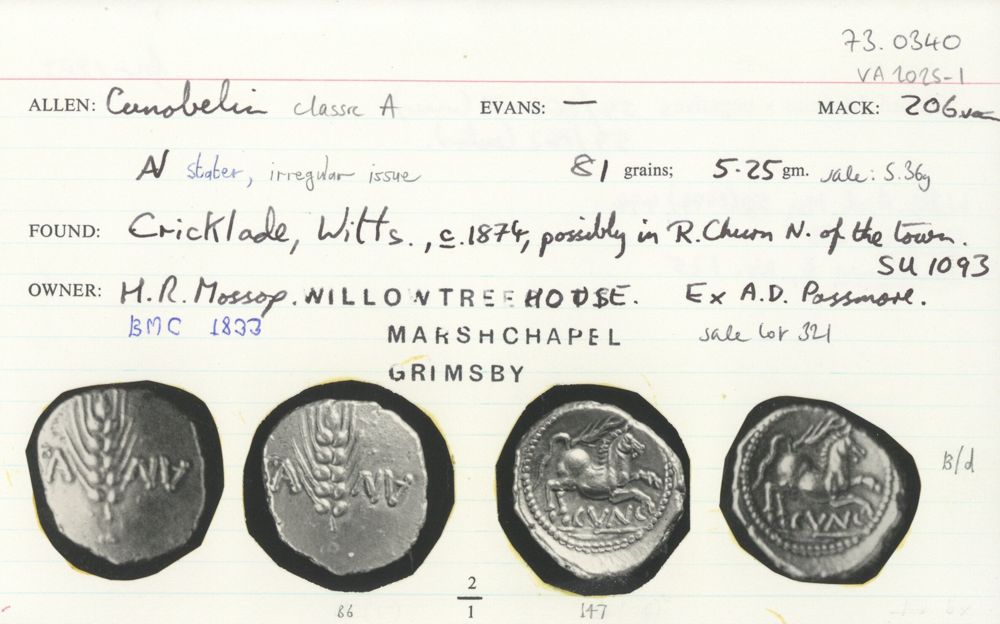 73.0340
VA 2025-1
ALLEN: Cunobelin classic A EVANS: — MACK: 206 var
AV stater, irregular issue 81 grains; 5.25 gm. sale: 5.36g
FOUND: Cricklade, Wilts., c.1874, possibly in R. Churn N. of the town.
SU 1093
OWNER: H.R. Mossop. WILLOWTREE HOUSE. Ex A.D. Passmore.
BMC 1833 MARSHCHAPEL sale lot 321
GRIMSBY
CVNO CVNO
B/d
2
86 1 147